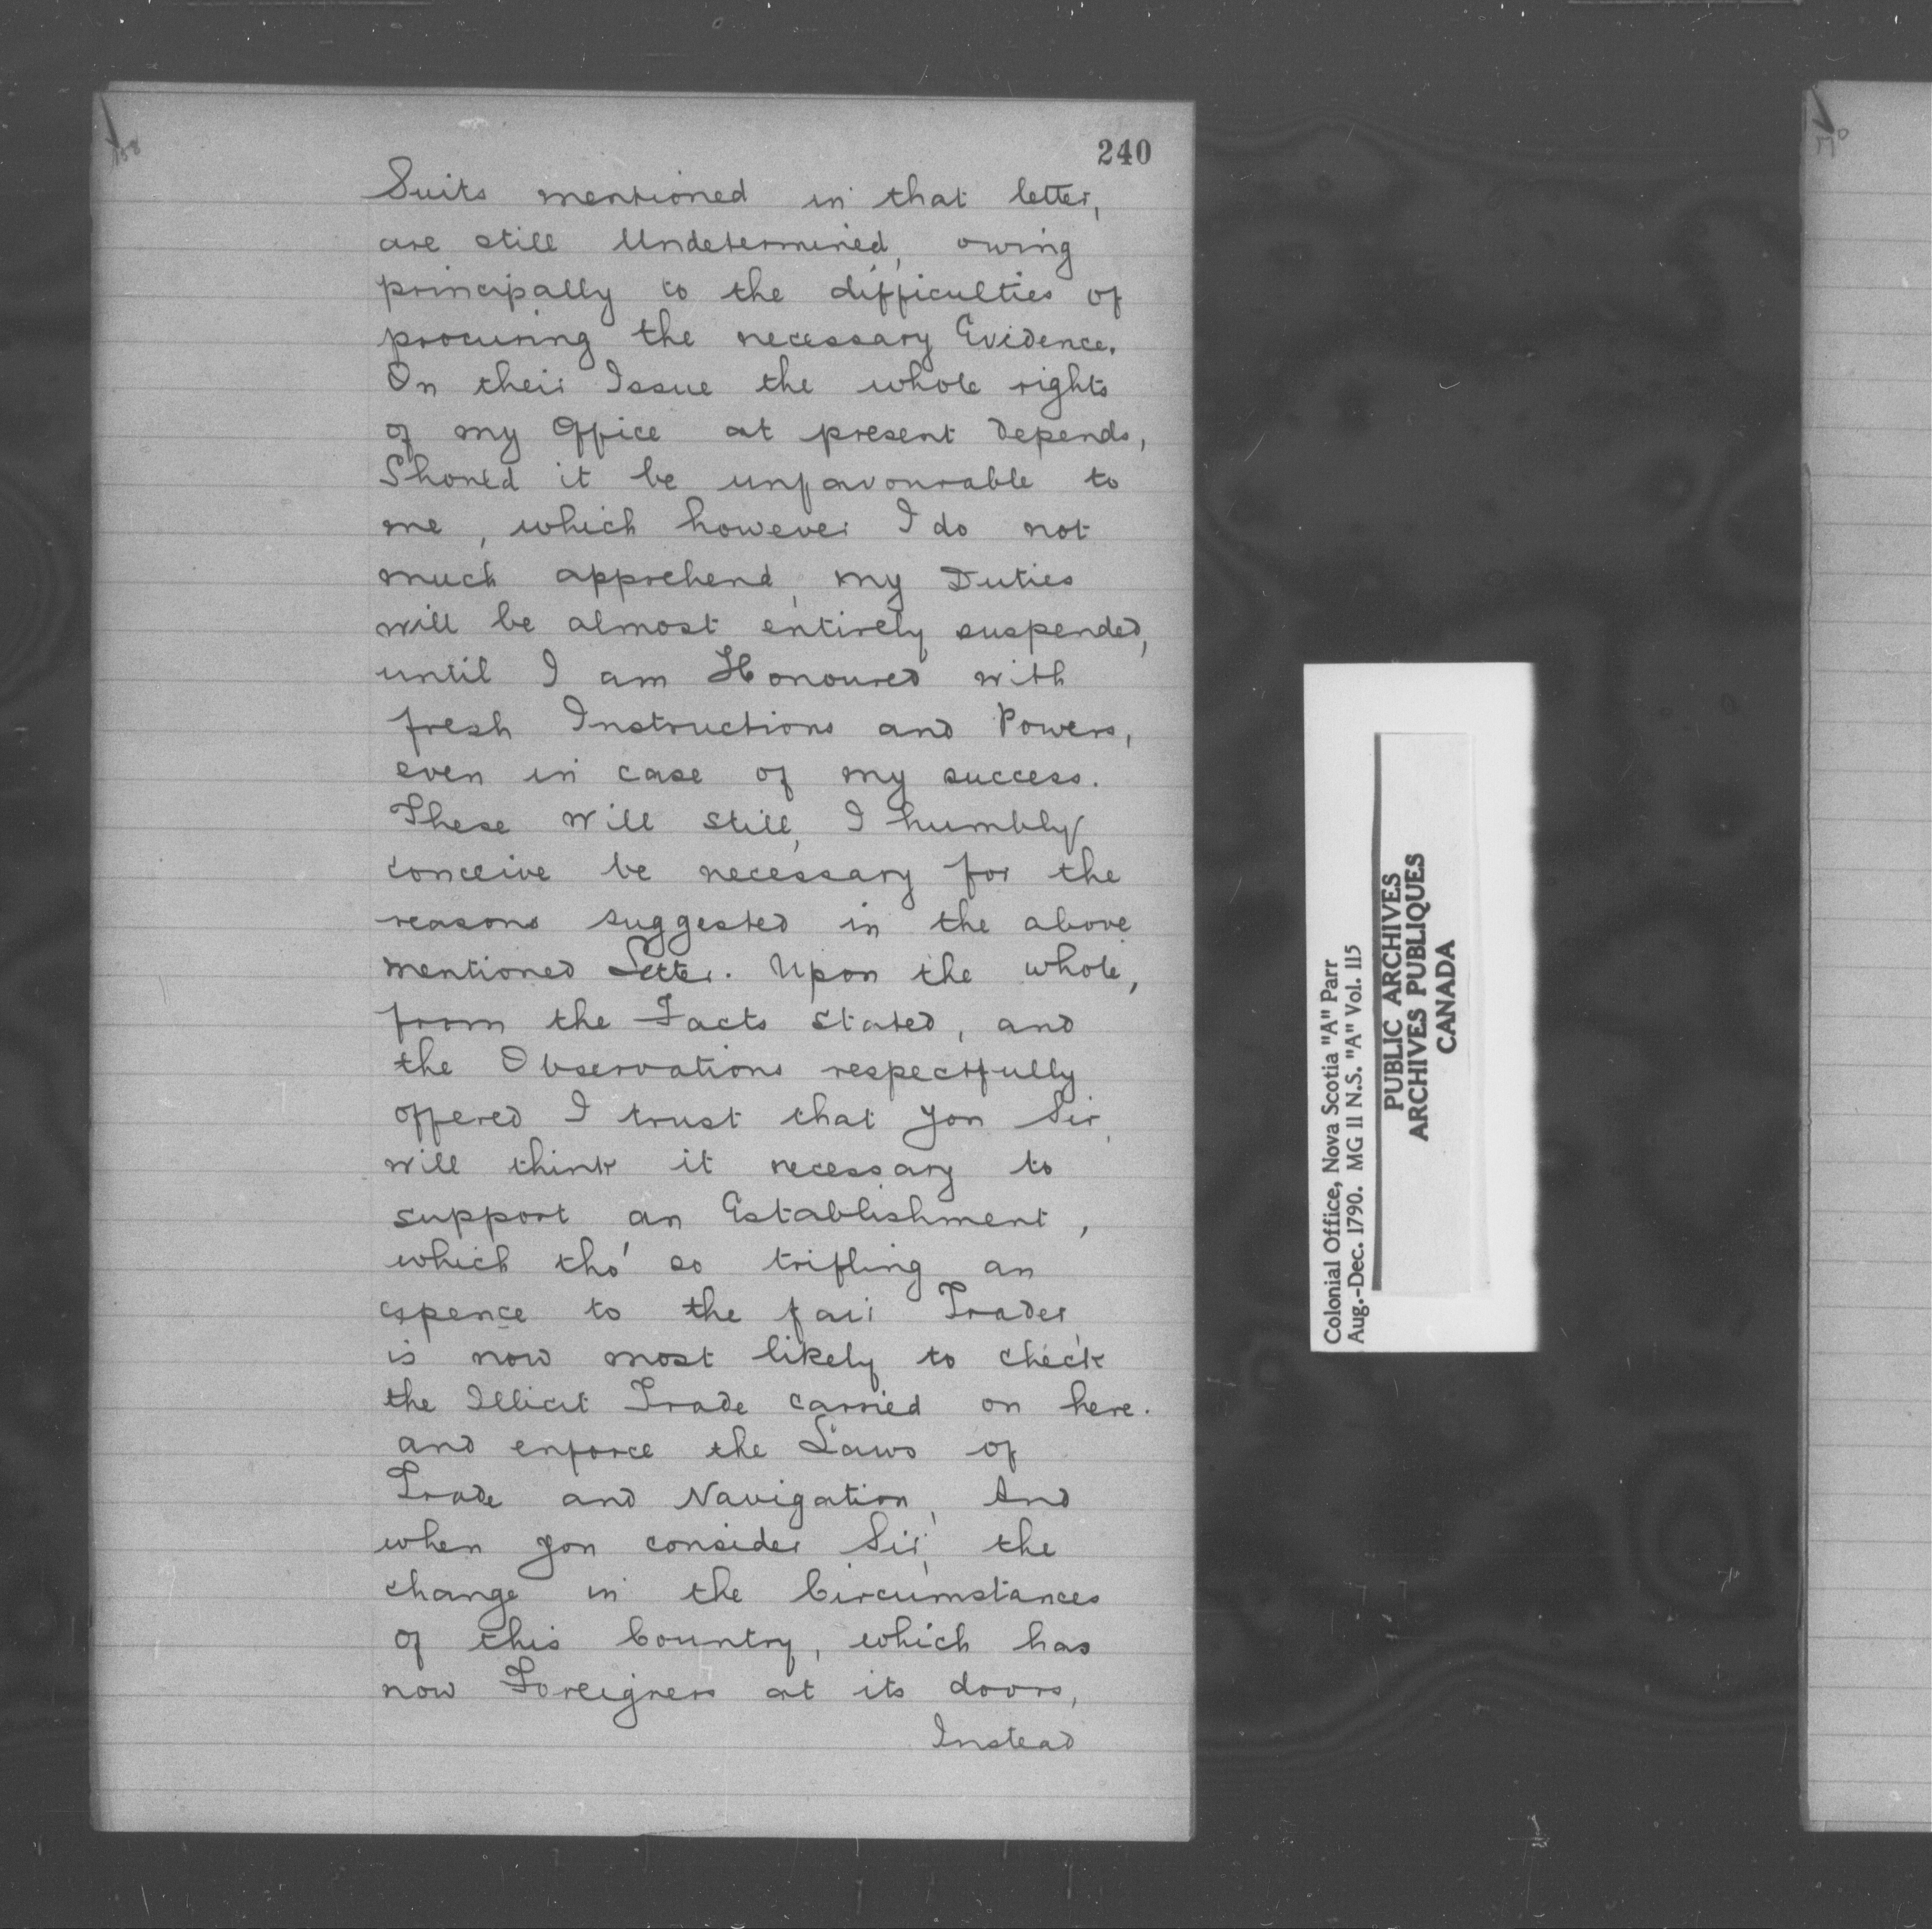 240
Suits mentioned in that letter,
are still Undetermined, owing
principally to the difficulties of
procuring the necessary Evidence.
On their Issue the whole rights
of my Office at present depends,
Should it be unfavourable to
me, which however I do not
much apprehend, my Duties
will be almost entirely suspended,
until I am Honoured with
fresh Instructions and Powers,
even in case of my success.
These will still, I humbly
conceive be necessary for the
reasons suggested in the above
mentioned Letter. Upon the whole,
from the Facts stated, and
the Observations respectfully
offered I trust that you Sir,
will think it necessary to
support an Establishment,
which tho' so trifling an
expence to the fair Trader,
is now most likely to check
the Illicit Trade carried on here.
and enforce the Laws of
Trade and Navigation, And
when you consider Sir, the
change in the Circumstances
of this Country, which has
now Foreigners at its doors,
Instead
Colonial Office, Nova Scotia "A" Parr
Aug.-Dec. 1790. MG 11 N.S. "A" Vol. 115
PUBLIC ARCHIVES
ARCHIVES PUBLIQUES
CANADA